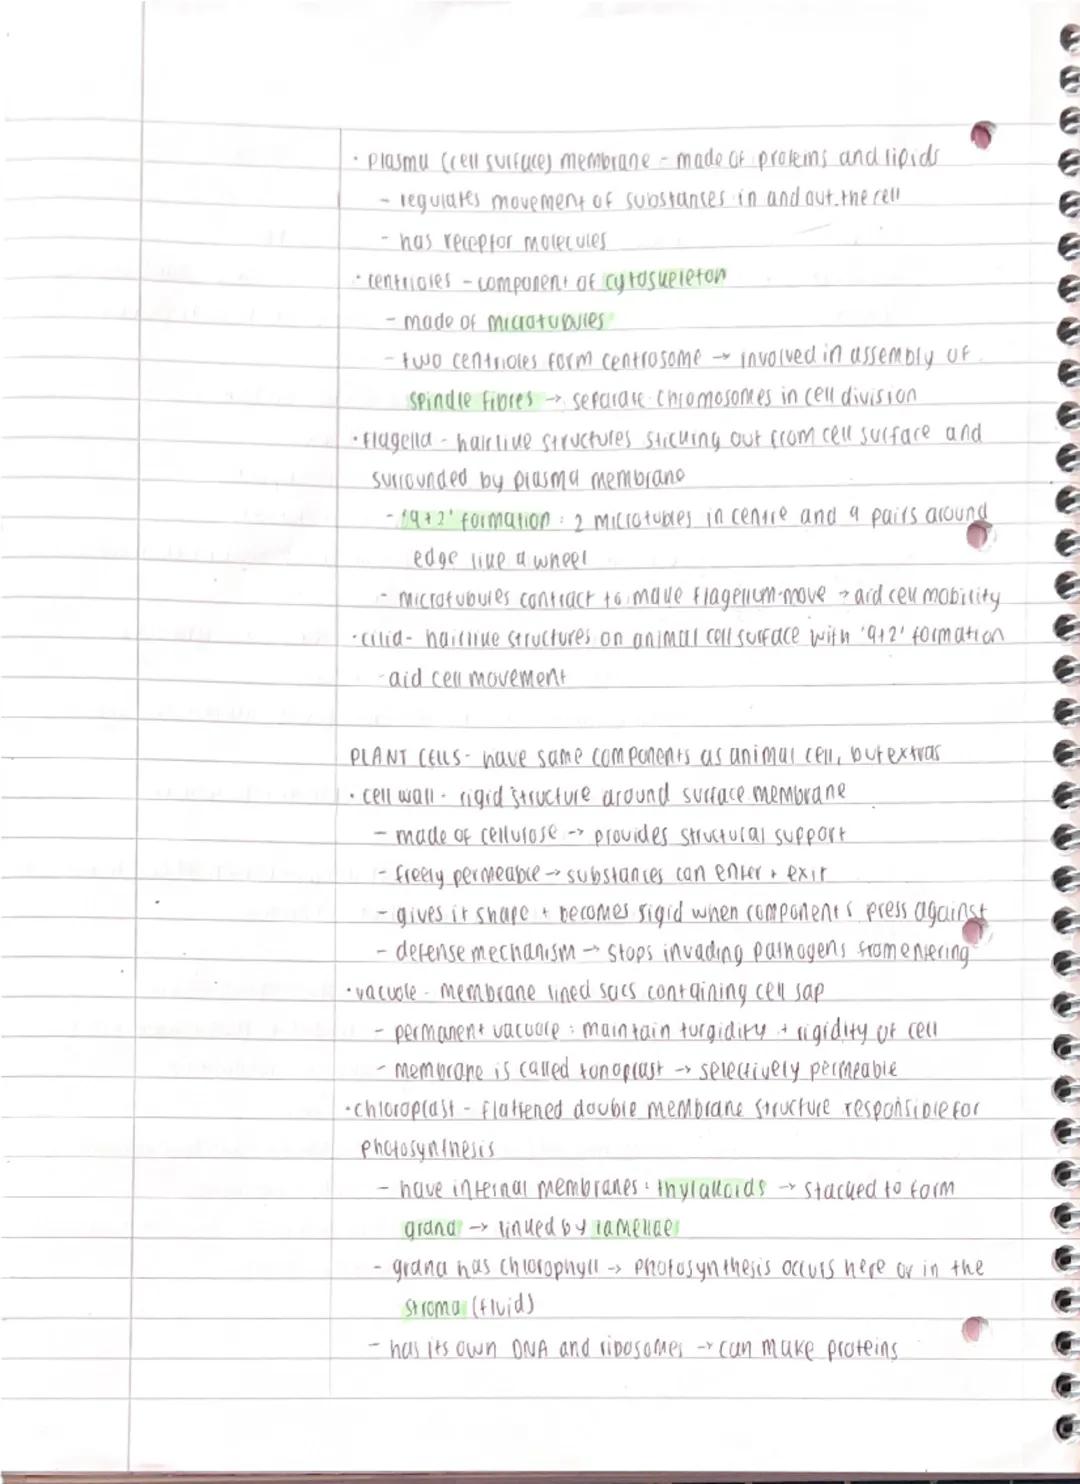 · Plasma (cell surface) membrane - made of proteins and lipids
- regulates movement of substances in and out the cell
- has receptor molecules
· centrioles - component of cytoskeleton
- made of microtubules
- two centrioles form centrosome → involved in assembly of
spindle fibres → separate chromosomes in cell division
· Flagella - hairlike structures sticking out from cell surface and
surrounded by plasma membrane
- '9+2' formation : 2 microtubles in centre and 9 pairs around
edge like a wheel
- microtubules contract to make flagellum move → aid cell mobility
· cilia - hairlike structures on animal cell surface with '9+2' formation
- aid cell movement
PLANT CELLS - have same components as animal cell, but extras
· cell wall - rigid structure around surface membrane
- made of cellulose → provides structural support
- freely permeable → substances can enter + exit
- gives it shape + becomes rigid when components press against
- defense mechanism → stops invading pathogens from entering
· vacuole - membrane lined sacs containing cell sap
- permanent vacuole : maintain turgidity + rigidity of cell
- membrane is called tonoplast → selectively permeable
· chloroplast - flattened double membrane structure responsible for
photosynthesis
- have internal membranes : thylakoids → stacked to form
grana → linked by lamellae
- grana has chlorophyll → photosynthesis occurs here or in the
stroma (fluid)
- has its own DNA and ribosomes → can make proteins